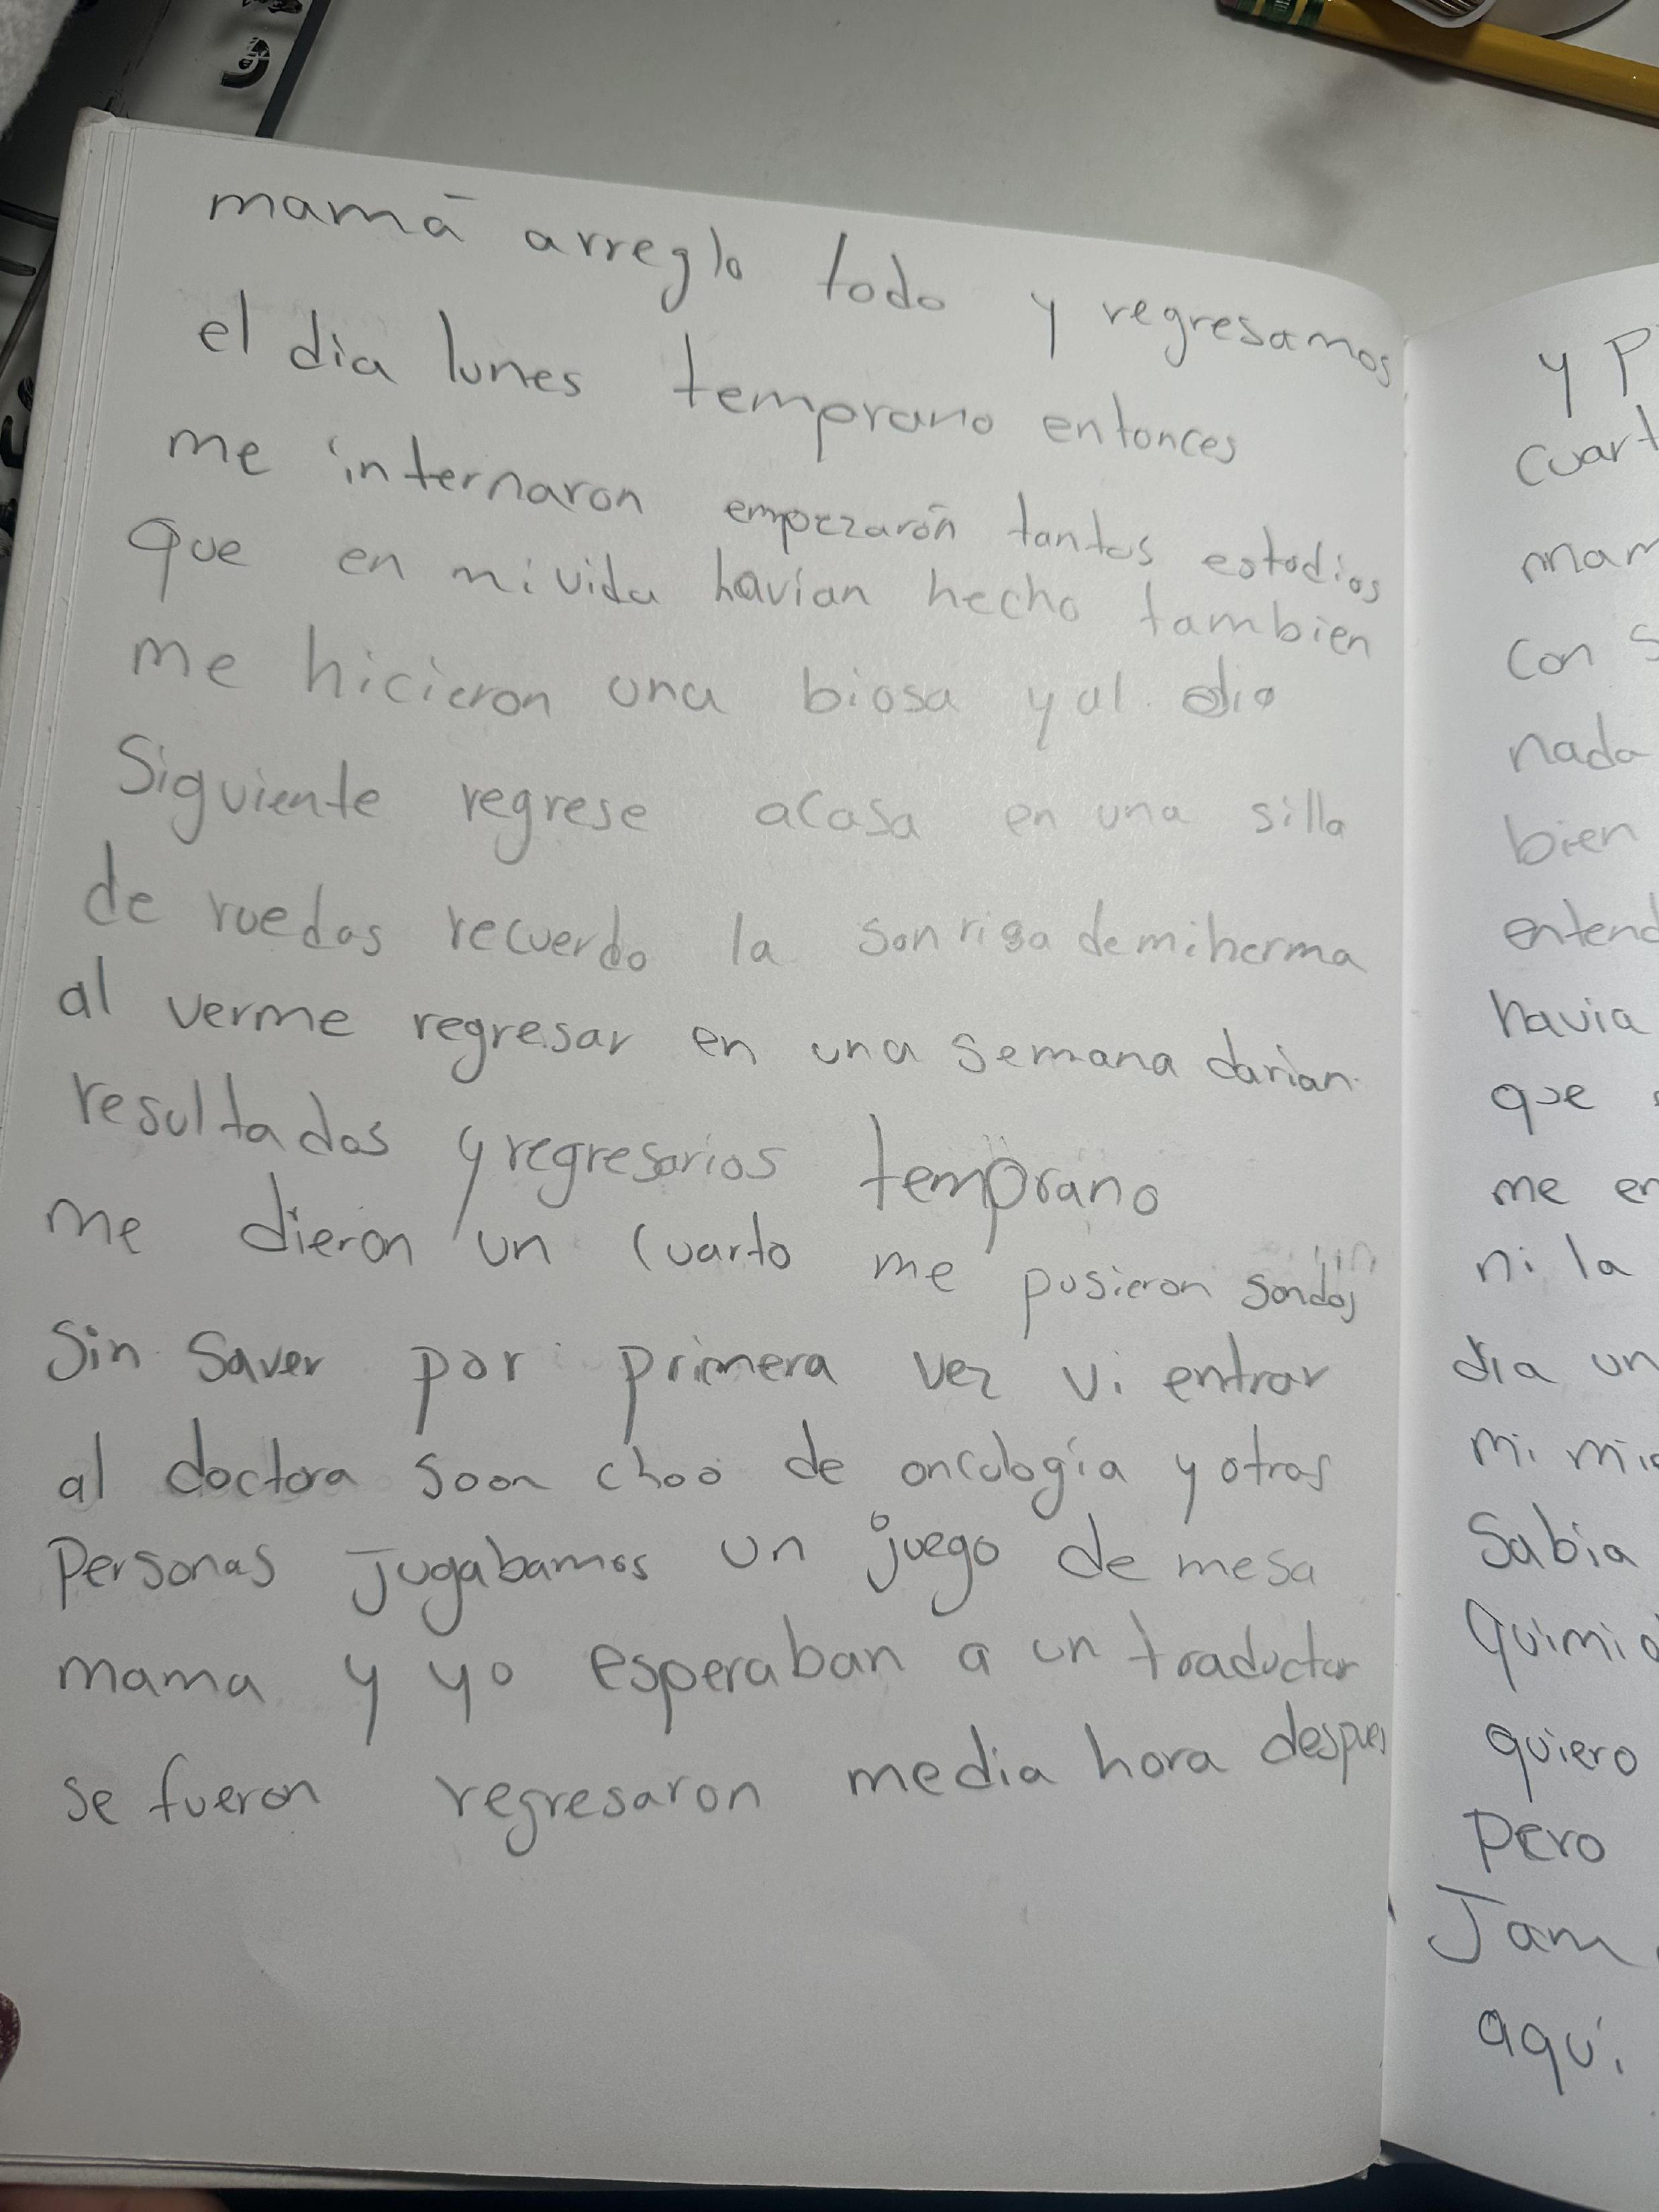 mamá arreglo todo y regresamos
el dia lunes temprano entonces
me internaron empezarón tantos estodios
que en mi vida havian hecho tambien
me hicieron una biosa y al dia
Siguiente regrese acasa en una silla
de ruedas recuerdo la sonrisa demiherma
al verme regresar en una semana darian
resultados y regresarios temprano
me dieron un cuarto me pusieron sondas
Sin Saver por primera vez vi entrar
al doctora soon choo de oncología y otras
Personas Jugabamos un juego de mesa
mama y yo esperaban a un traductor
se fueron regresaron media hora despues
y
cuart
con
nada
bien
entend
havia
que
me en
ni la
dia un
mi
Sabia
quiero
Pero
Jam
aqui